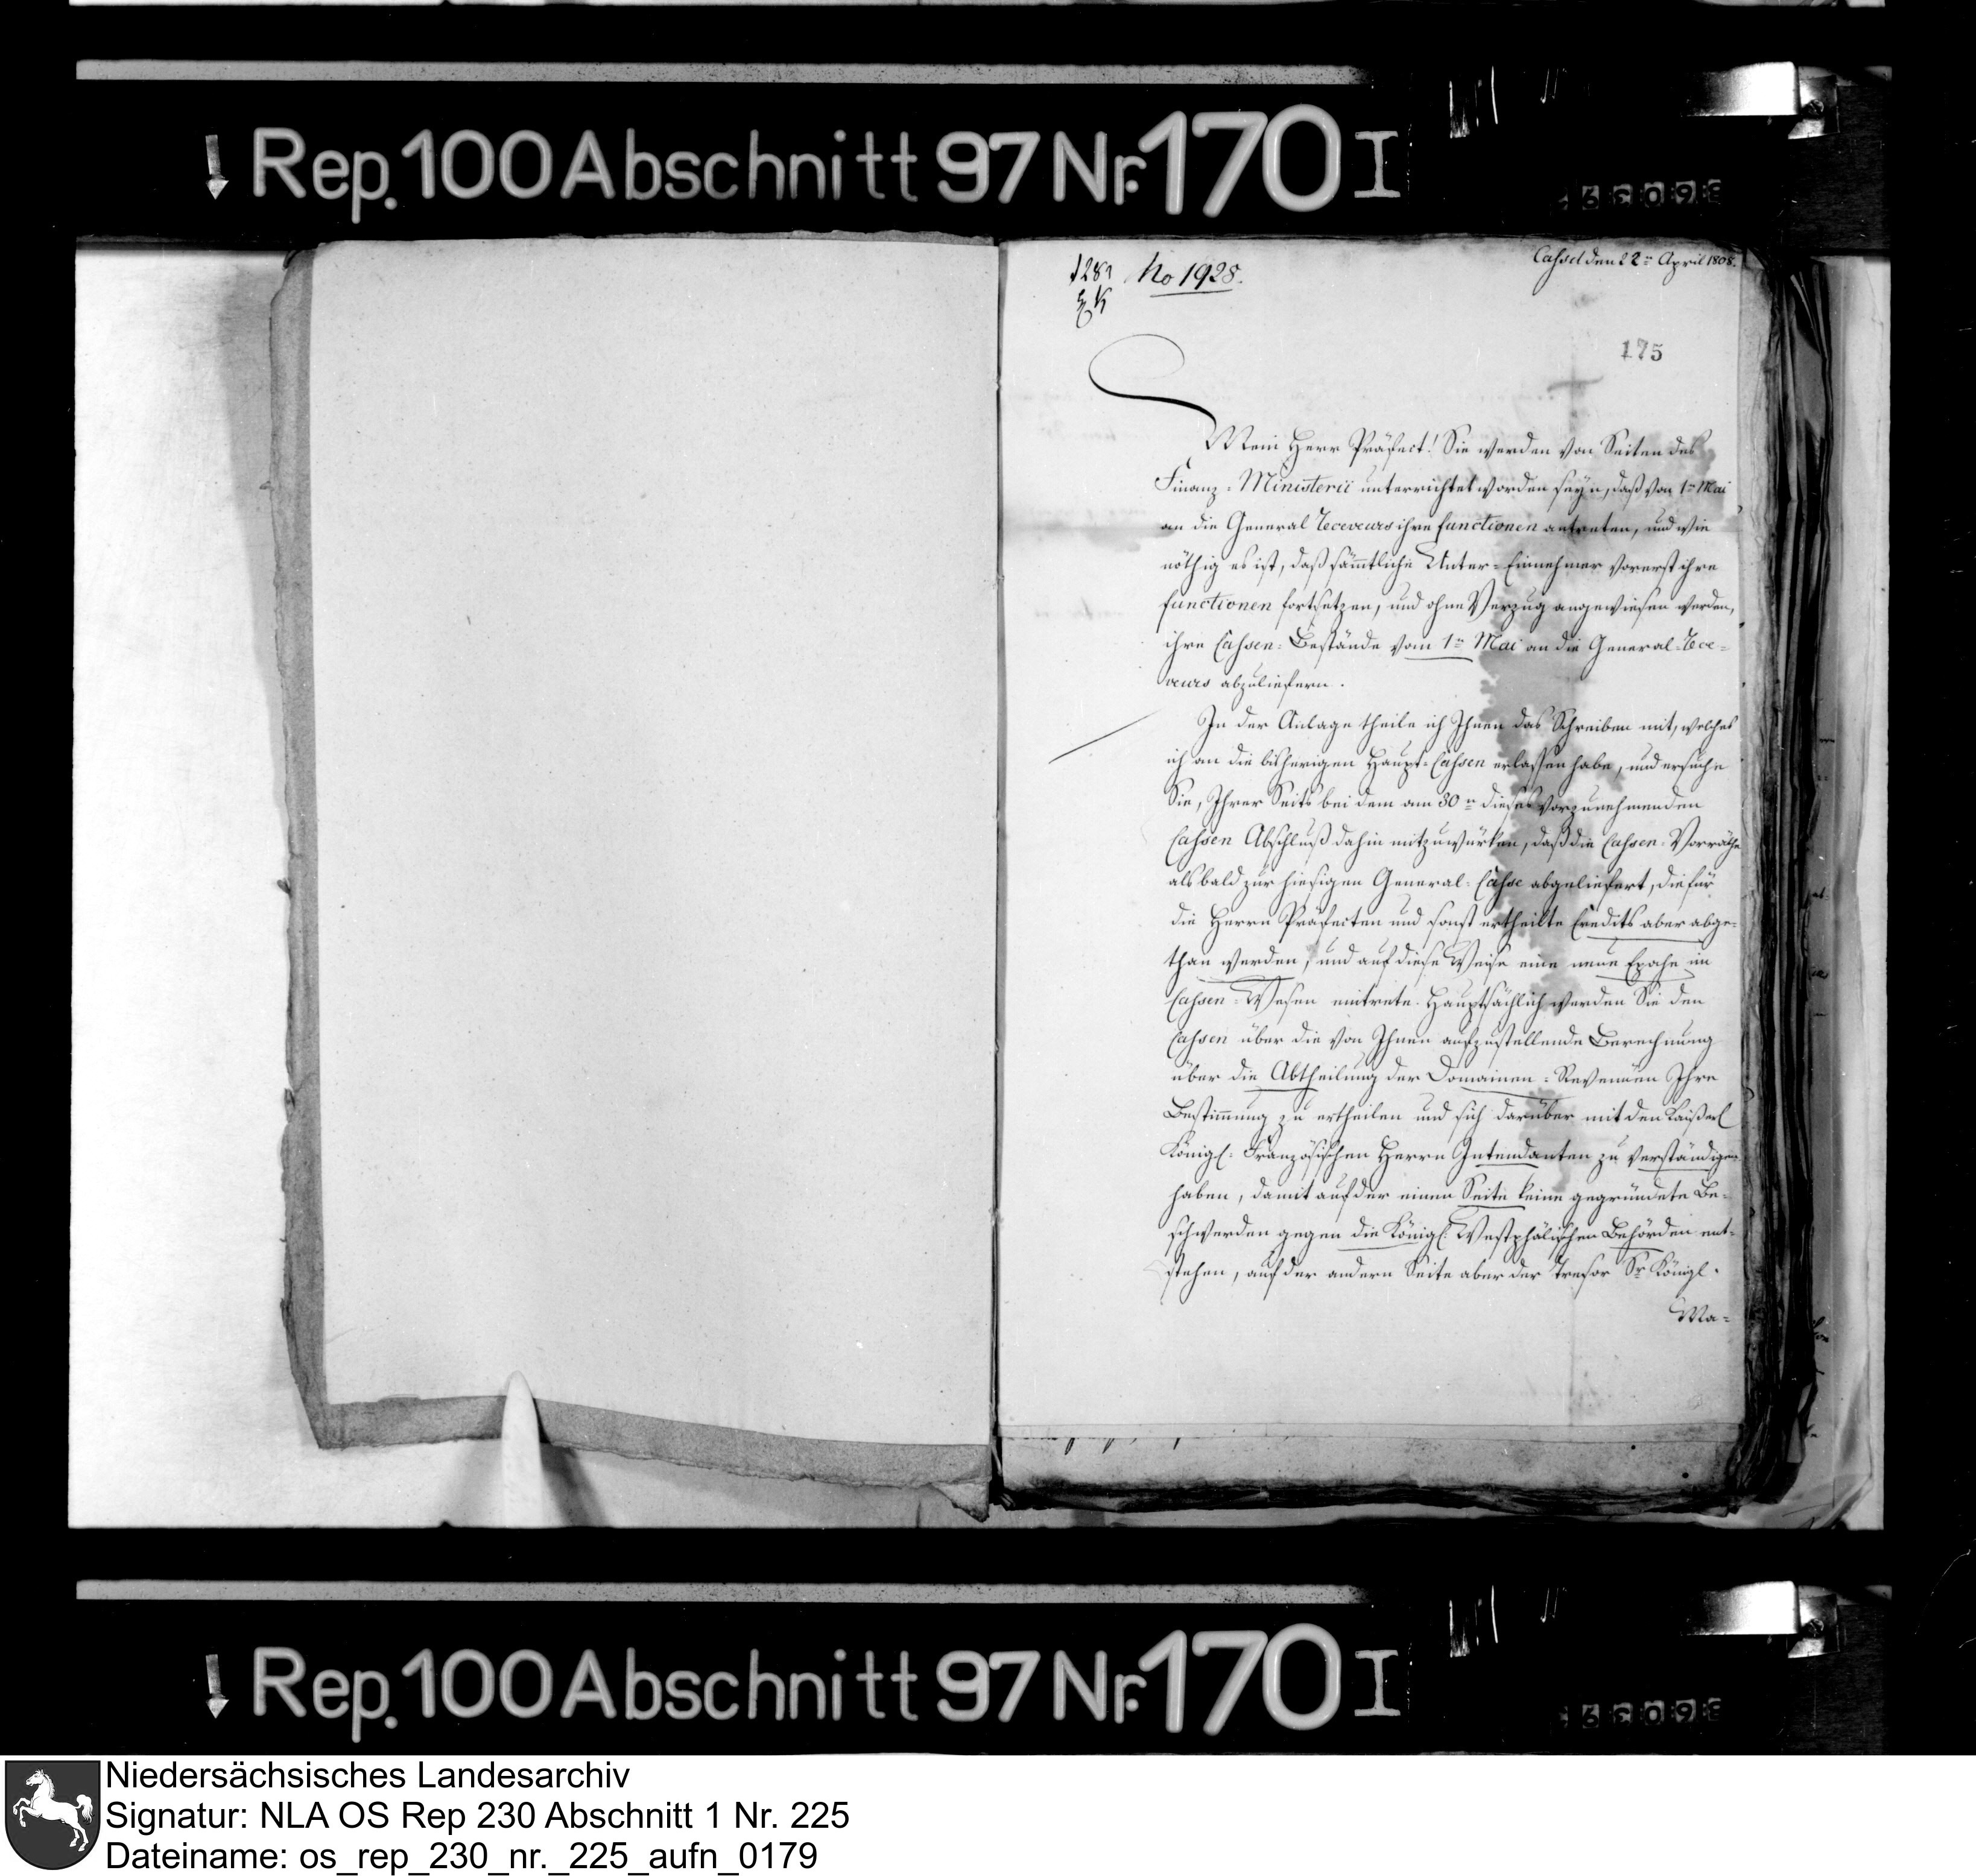 Rep. 100 Abschnitt 97 Nr. 170 I
No 1928.
Cassel den 22n April 1808.
175
Mein Herr Präfect! Sie werden von Seiten des
Finanz-Ministerii unterrichtet worden seyn, daß von 1n Mai
an die General Receveurs ihre functionen antreten, und wie
nöthig es ist, daß sämtliche Unter-Einnehmer vorerst ihre
functionen fortsetzen, und ohne Verzug angewiesen werden,
ihre Cassen-Bestände vom 1n Mai an die General-Rece-
veurs abzuliefern.
In der Anlage theile ich Ihnen das Schreiben mit, welches
ich an die bisherigen Haupt-Cassen erlassen habe, und ersuche
Sie, Ihrer Seits bei dem am 30n dieses vorzunehmenden
Cassen Abschluß dahin mitzuwürken, daß die Cassen-Vorräthe
alsbald zur hiesigen General-Casse abgeliefert, die für
die Herrn Präfecten und sonst ertheilte Credits aber abge-
than werden, und auf diese Weise eine neue Epoche im
Cassen-Wesen eintrete. Hauptsächlich werden Sie den
Cassen über die von Ihnen aufzustellende Berechnung
über die Abtheilung der Domainen-Revenüen Ihre
Bestimmung zu ertheilen und sich darüber mit den Kaiserl
Königl-Französischen Herrn Intendanten zu verständigen
haben, damit auf der einen Seite keine gegründete Be-
schwerden gegen die Königl. Westphälischen Behörden ent-
stehen, auf der andern Seite aber der Tresor Sr Königl.
Ma-
Rep. 100 Abschnitt 97 Nr. 170 I
Niedersächsisches Landesarchiv
Signatur: NLA OS Rep 230 Abschnitt 1 Nr. 225
Dateiname: os_rep_230_nr._225_aufn_0179